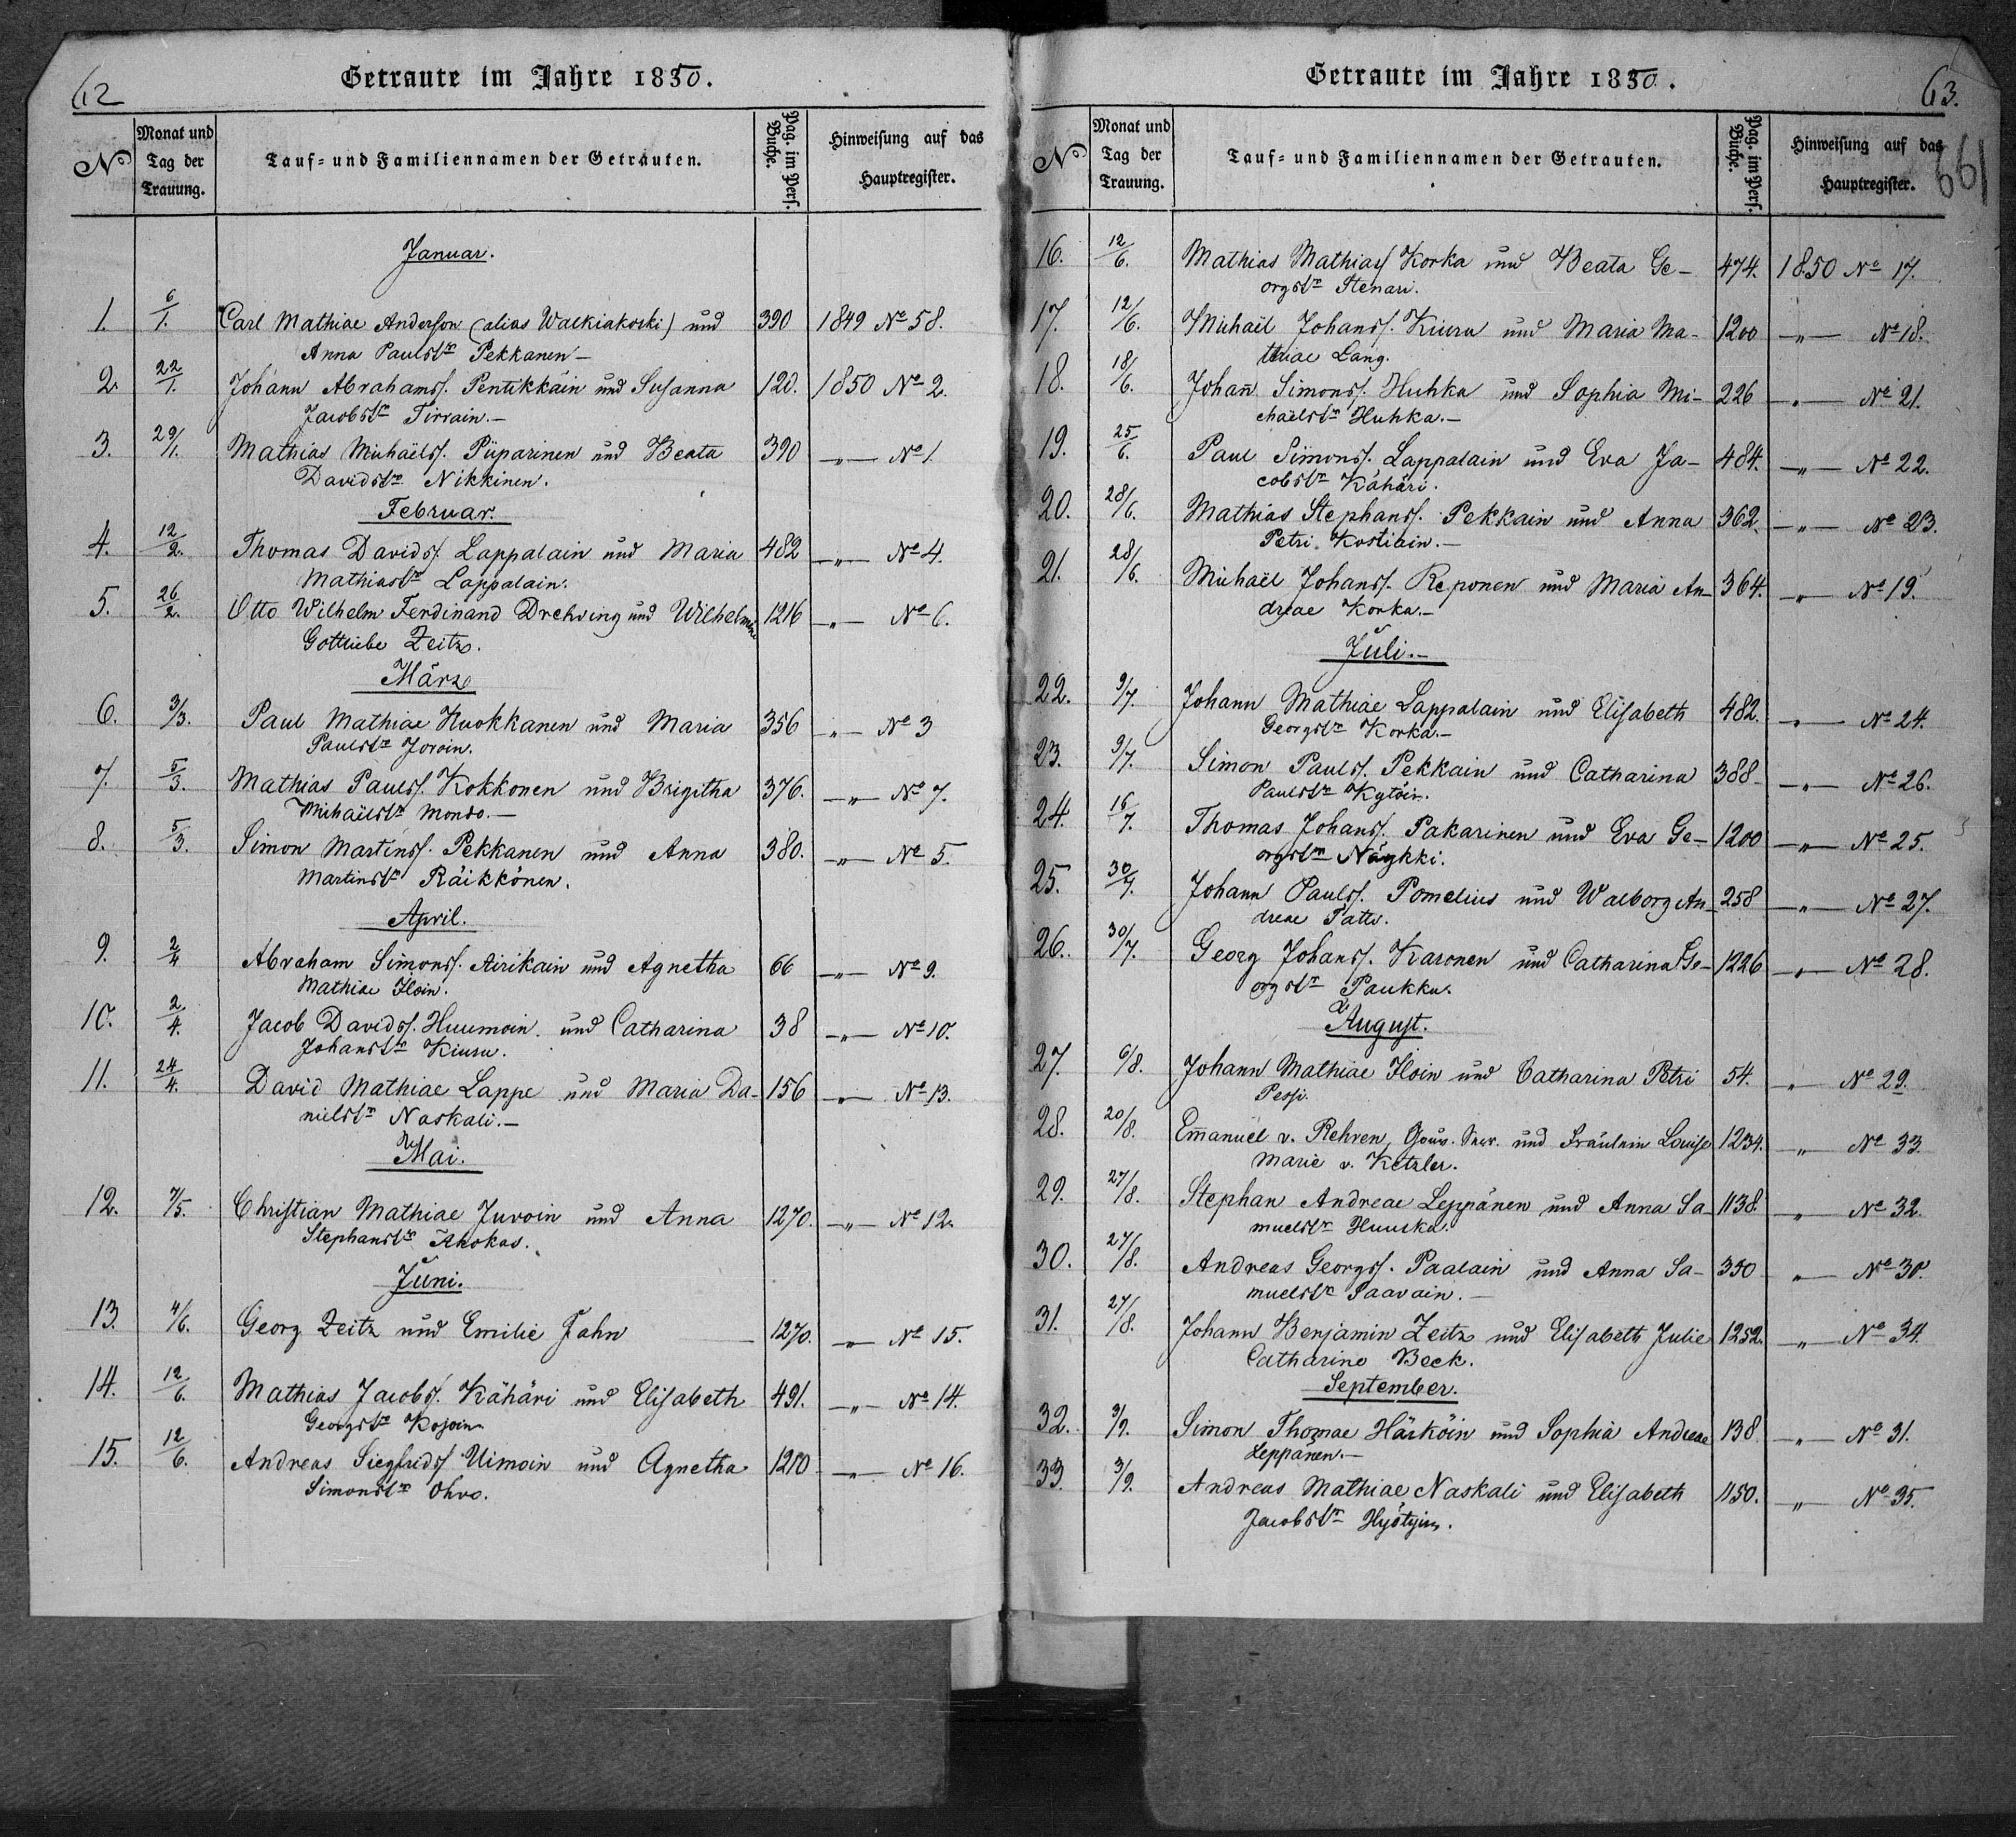 62
Getraute im Jahre 1850.
No
Monat und
Tag der
Trauung.
Tauf- und Familiennamen der Getrauten.
Pag. im Pers.
Buche.
Hinweisung auf das
Hauptregister.
Januar.
1. 6/1. Carl Mathiae Anderson (alias Walkiakoski) und 390 1849 No 58.
Anna Paulstr Pekkanen —
2. 22/1. Johann Abrahamss. Pentikkäin und Susanna 120. 1850 No 2.
Jacobstr Tirrain. —
3. 29/1. Mathias Michaëlss. Piiparinen und Beata 390 —"— No 1.
Davidstr Nikkinen.
Februar.
4. 12/2. Thomas Davidss. Lappalain und Maria 482 —"— No 4.
Mathiastr Lappalain.
5. 26/2. Otto Wilhelm Ferdinand Drehving und Wilhelmine 1216 —"— No 6.
Gottliebe Zeitz.
März
6. 3/3. Paul Mathiae Kuokkanen und Maria 356 —"— No 3
Paulstr Joroin.
7. 5/3. Mathias Paulss. Kokkonen und Brigitha 376. —"— No 7.
Michaëlstr Mondo. —
8. 5/3. Simon Martinss. Pekkanen und Anna 380. —"— No 5.
Martinstr Räikkönen.
April.
9. 2/4 Abraham Simonss. Airikain und Agnetha 66 —"— No 9.
Mathiae Iloin.
10. 2/4. Jacob Davidss. Huumoin und Catharina 38 —"— No 10.
Johanstr Kiuru.
11. 24/4. David Mathiae Lappe und Maria Da- 156 —"— No 13.
nielstr Naskali. —
Mai.
12. 7/5. Christian Mathiae Juvoin und Anna 1270. —"— No 12.
Stephanstr Ahokas.
Juni.
13. 4/6. Georg Zeitz und Emilie Jahn — 1270. —"— No 15.
14. 12/6. Mathias Jacobss. Kähäri und Elisabeth 491. —"— No 14.
Georgstr Kojoin
15. 12/6. Andreas Siegfridss Uimoin und Agnetha 1210 —"— No 16.
Simonstr Ohvo.
63.
661
Getraute im Jahre 1850.
No
Monat und
Tag der
Trauung.
Tauf- und Familiennamen der Getrauten.
Pag. im Pers.
Buche.
Hinweisung auf das
Hauptregister.
16. 12/6. Mathias Mathiass Korka und Beata Ge- 474. 1850 No 17.
orgstr Stenari.
17. 12/6. Michaël Johanss. Kiuru und Maria Ma- 1200 —"— No 18.
thiae Lang.
18. 18/6. Johan̄ Simonss. Huhka und Sophia Mi- 226 —"— No 21.
chaëlstr Huhka. —
19. 25/6. Paul Simonss. Lappalain und Eva Ja- 484. —"— No 22.
cobstr Kähäri.
20. 28/6. Mathias Stephanss. Pekkain und Anna 362. —"— No 23.
Petri Kostiain. —
21. 28/6. Michaël Johanss. Reponen und Maria An- 364. —"— No 19.
dreae Korka. —
Juli. —
22. 9/7. Johann Mathiae Lappalain und Elisabeth 482. —"— No 24.
Georgstr Korka. —
23. 9/7. Simon Paulss. Pekkain und Catharina 388 —"— No 26.
Paulstr Kytöin.
24. 16/7. Thomas Johanss. Pakarinen und Eva Ge- 1200 —"— No 25.
orgstr Näykki.
25. 30/7. Johann Paulss. Pomelius und Walborg An- 258 —"— No 27.
dreae Tatti.
26. 30/7. Georg Johanss. Karonen und Catharina Ge- 1226 —"— No 28.
orgstr Paukku.
August.
27. 6/8. Johann Mathiae Iloin und Catharina Petri 54. —"— No 29.
Pessi.
28. 20/8. Em̄anuel v. Rehren, Gouv. Secr. und Fräulein Louise 1234. —"— No 33.
Marie v. Ketzler.
29. 27/8. Stephan Andreae Leppänen und Anna Sa- 1138. —"— No 32.
muelstr Huuska.
30. 27/8. Andreas Georgss. Paalain und Anna Sa- 350 —"— No 30.
muelstr Paavain. —
31. 27/8. Johann Benjamin Zeitz und Elisabeth Julie 1252. —"— No 34.
Catharine Beck.
September.
32. 3/9. Simon Thomae Härköin und Sophia Andreae 138 —"— No 31.
Leppänen. —
33. 3/9. Andreas Mathiae Naskali und Elisabeth 1150. —"— No 35.
Jacobstr Hyötyin.